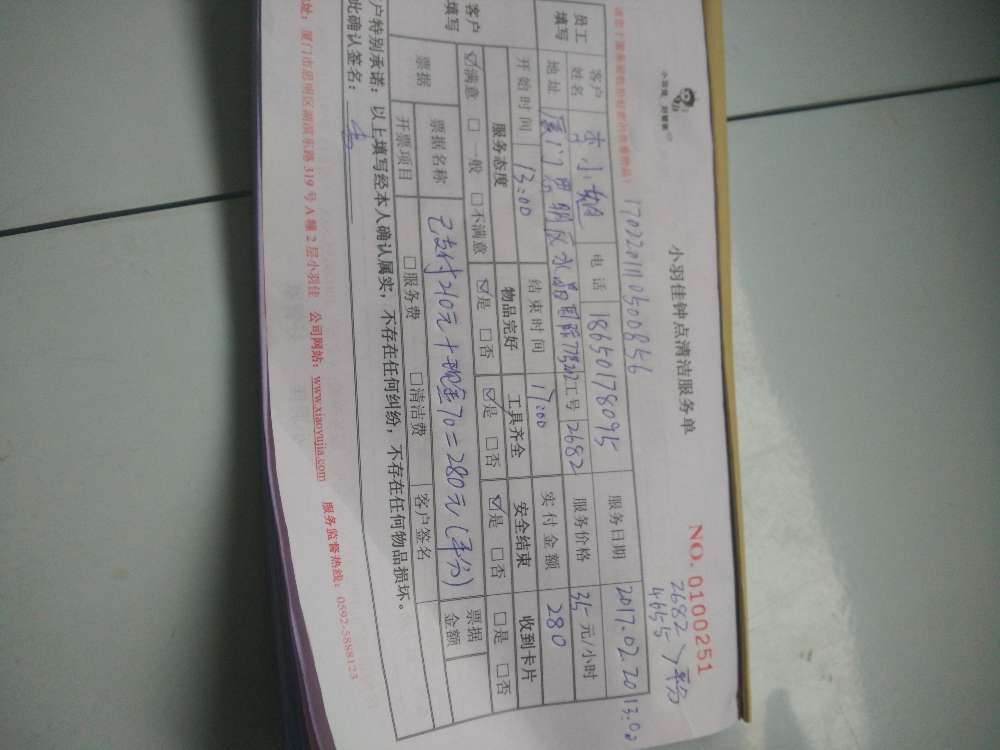 小羽佳钟点清洁服务单
NO. 0100251
2682
4655 平分
17022011105008 56
员工填写
客户姓名 李小姐 电话 18650178095 服务日期 2017.02.20 13:00
地址 厦门思明区水晶国际 工号 2682 服务价格 35元/小时
开始时间 13:00 结束时间 17:00 实付金额 280
客户填写
服务态度 物品完好 工具齐全 安全结束 收到卡片
☑满意 □一般 □不满意 ☑是 □否 ☑是 □否 ☑是 □否 □是 □否
票据 票据名称 已支付210元+现金70=280元(平分) 票据金额
开票项目 □服务费 □清洁费 客户签名
户特别承诺：以上填写经本人确认属实，不存在任何纠纷，不存在任何物品损坏。
此确认签名：
址：厦门市思明区湖滨东路319号A幢2层小羽佳 公司网站：www.xiaoyujia.com 服务监督热线：0592-5888123